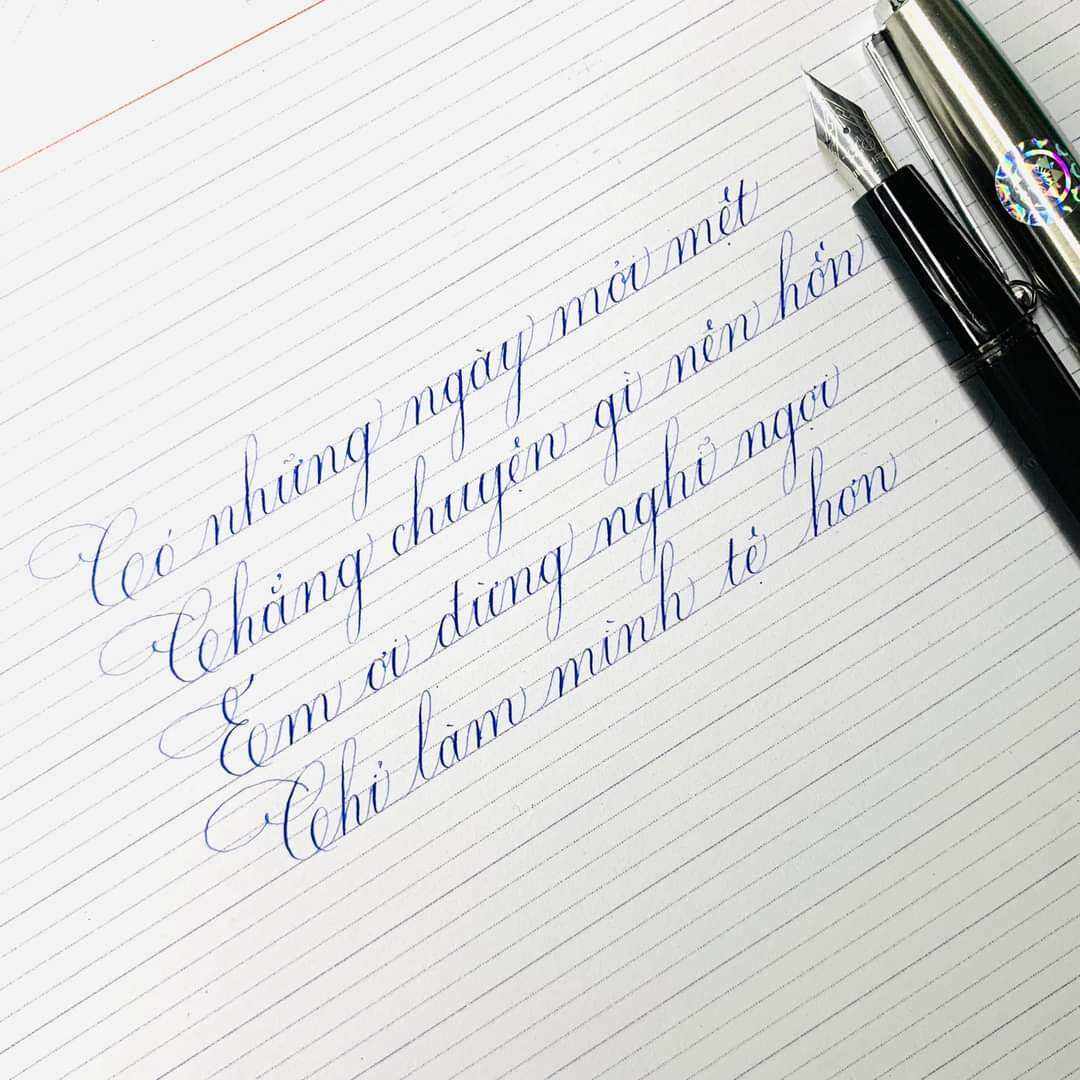 Có những ngày mỏi mệt
Chẳng chuyện gì nên hồn
Em ơi đừng nghỉ ngợi
Chỉ làm mình tệ hơn